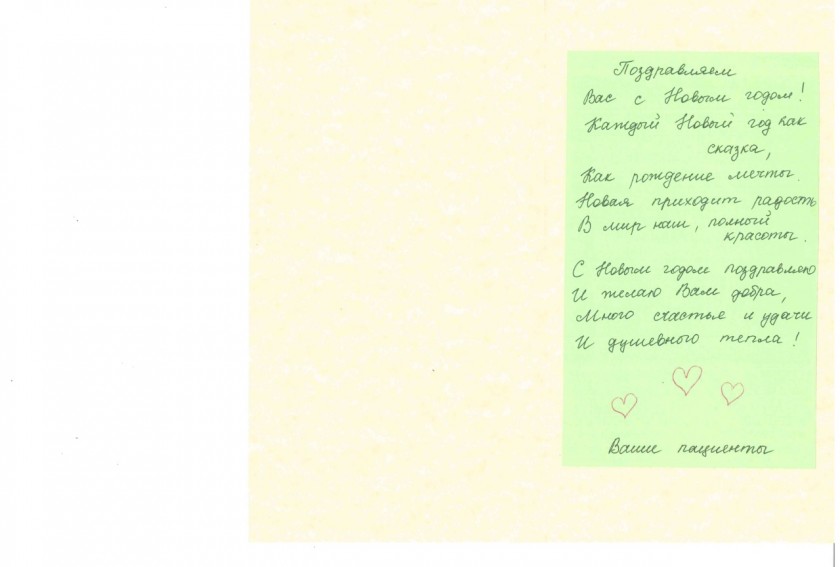 Поздравляем
Вас с Новым годом!
Каждый Новый год как
сказка,
Как рождение мечты.
Новая приходит радость
В мир наш, полный
красоты.
С Новым годом поздравляю
И желаю Вам добра,
Много счастья и удачи
И душевного тепла!
Ваши пациенты